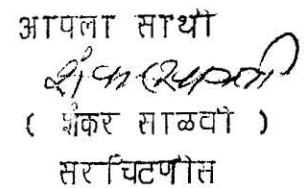 आपला साथी
( शंकर साळवी )
सरचिटणीस